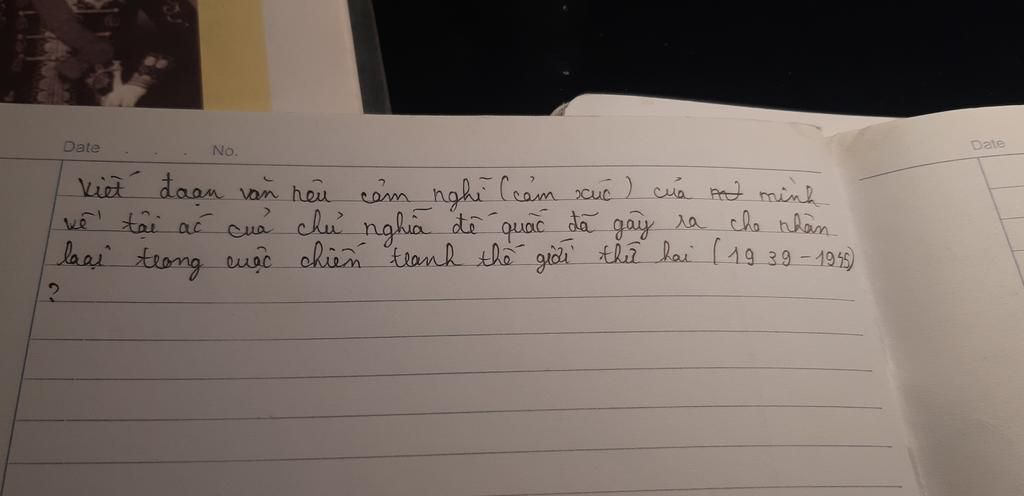 Date . . . No.
Date
Viết đoạn văn nêu cảm nghĩ (cảm xúc) của mình
về tội ác của chủ nghĩa đế quốc đã gây ra cho nhân
loại trong cuộc chiến tranh thế giới thứ hai (1939-1945)
?